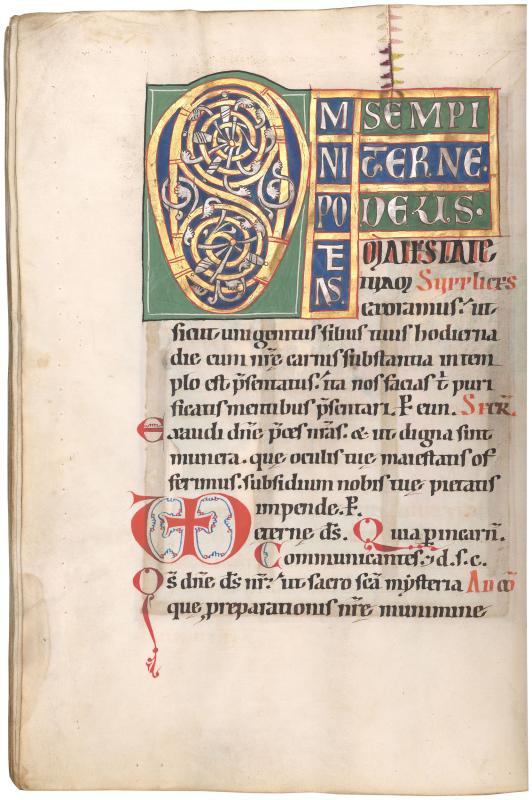 OMNIPOTENS SEMPI
TERNE.
DEUS.
MAIESTATE
tuam Supplices
exoramus: ut
sicut unigenitus filius tuus hodierna
die cum nr̄e carnis substantia in tem
plo est p̄sentatus: ita nos facias t̄ puri
ficatis mentibus p̄sentari. P eun. Secr̄.
Exaudi dn̄e p̄ces nr̄as. & ut digna sint
munera. que oculis tue maiestatis of
ferimus: subsidium nobis tue pietatis
impende. P.
eterne ds̄. Quia ꝑ incarn̄.
Communicantes. & d. s. c.
Qs̄ dn̄e ds̄ nr̄: ut sacro scā mysteria Ad cō
que, preparationis nr̄e munimine